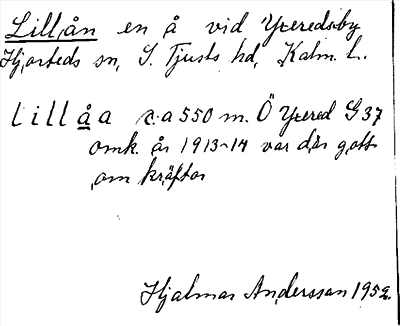 Lillån en å vid Yxeredsby
Hjorteds sn, S. Tjusts hd, Kalm. l.
lillåa c:a 550 m. Ö Yxered G 37
omk. år 1913-14 var där gott
om kräftor
Hjalmar Andersson 1952.